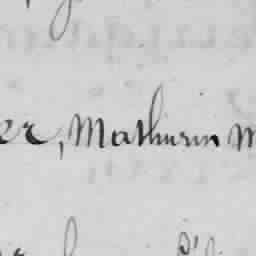 er, Mathurin M